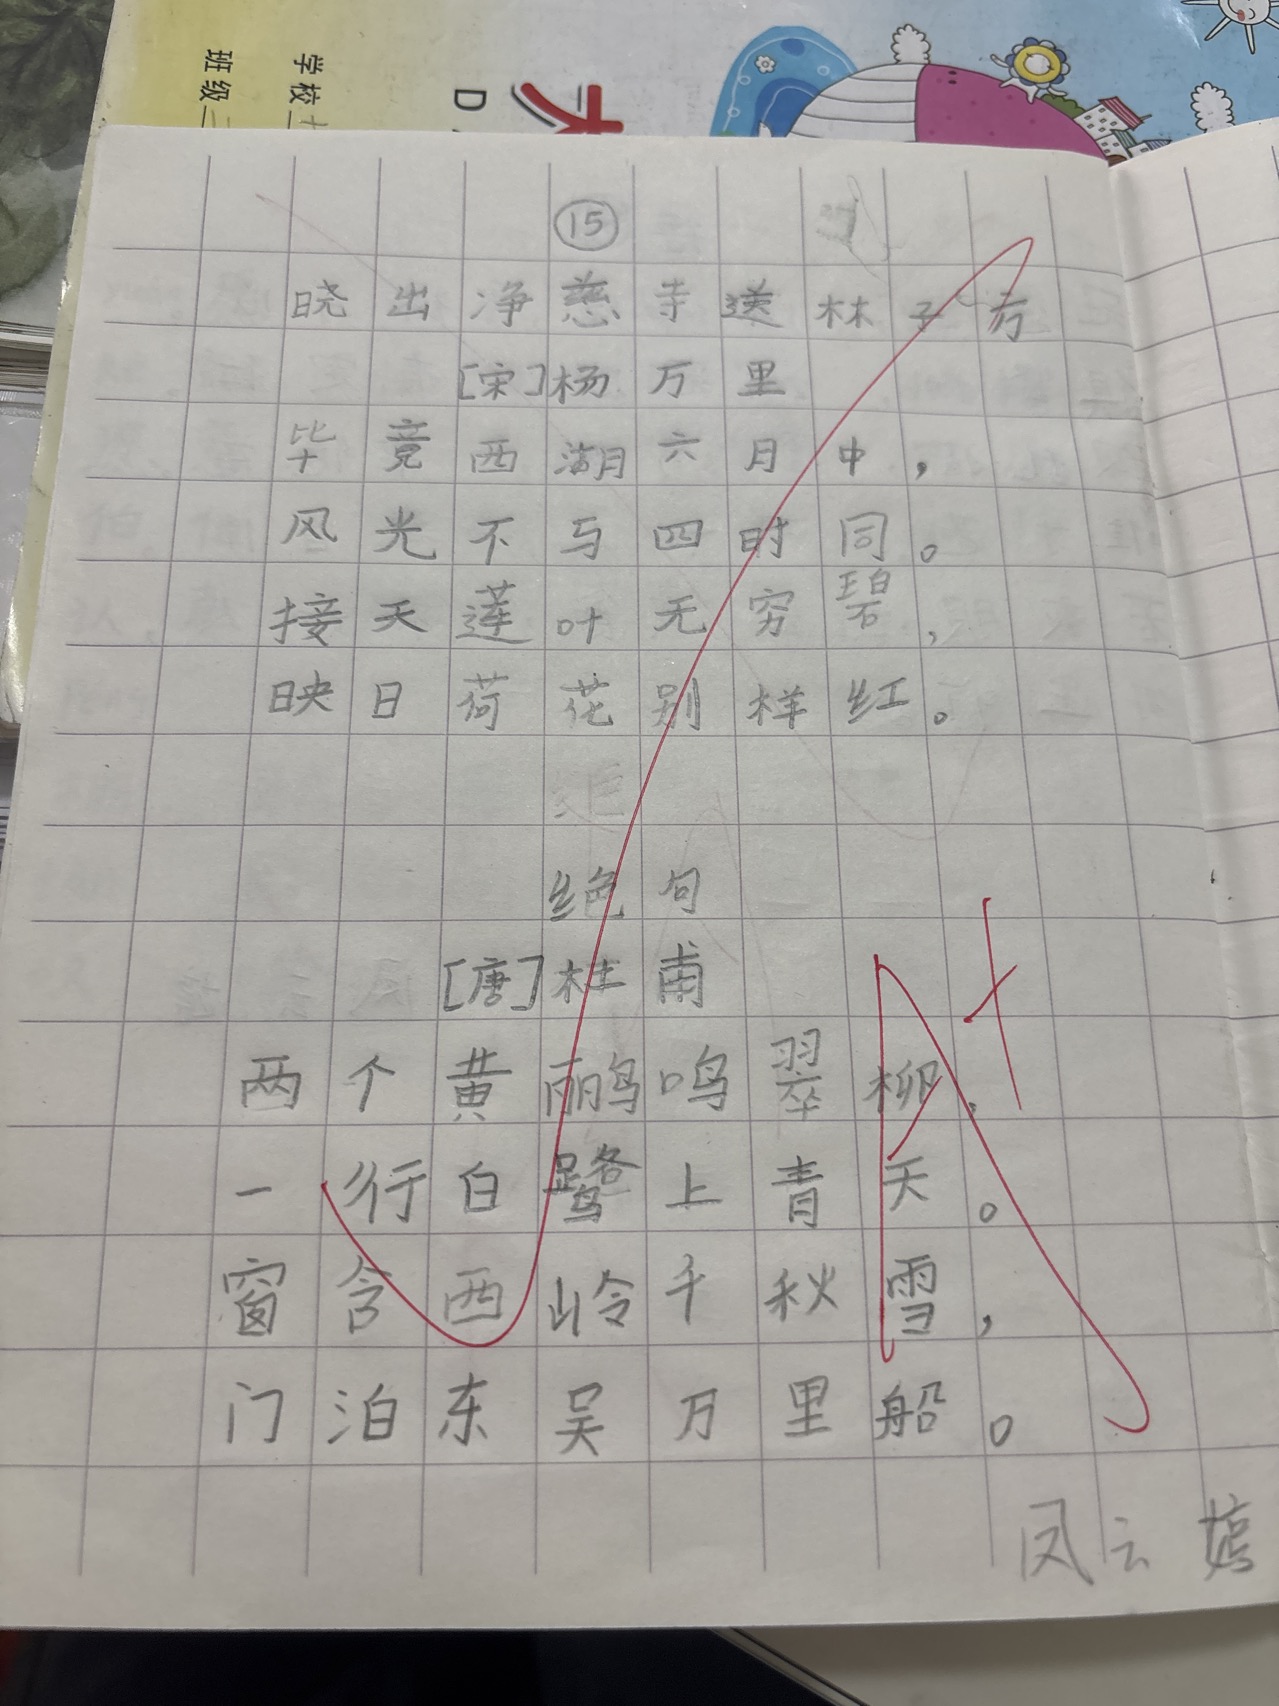 学校
班级
D
大
15
晓出净慈寺送林子方
[宋]杨万里
毕竟西湖六月中，
风光不与四时同。
接天莲叶无穷碧，
映日荷花别样红。
绝句
[唐]杜甫
两个黄鹂鸣翠柳，
一行白鹭上青天。
窗含西岭千秋雪，
门泊东吴万里船。
A+